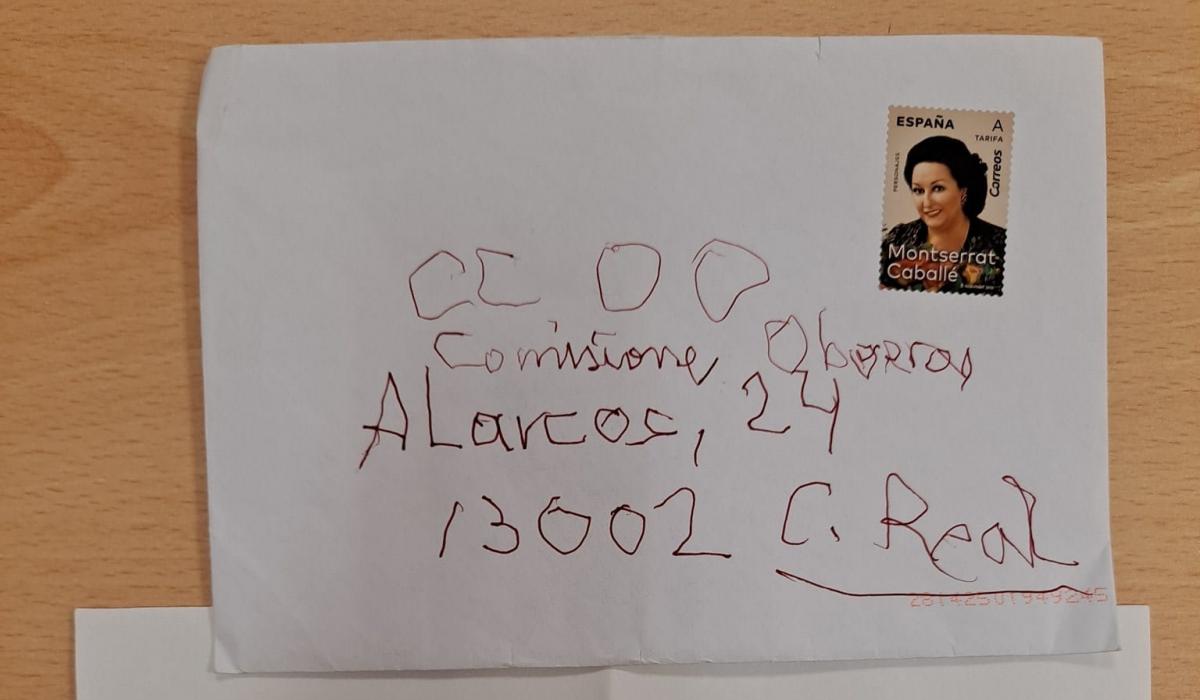 ESPAÑA A
TARIFA
PERSONAJES
Correos
Montserrat
Caballé
CC OO
Comisiones Obreras
ALarcos, 24
13002 C. Real